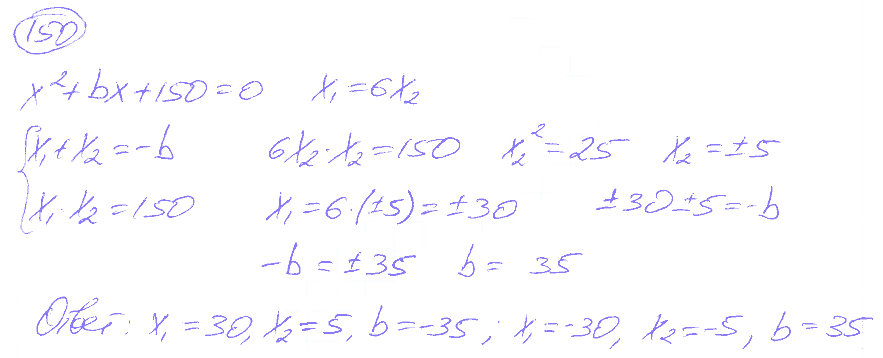 150
x²+bx+150=0 x₁=6x₂
{x₁+x₂=-b 6x₂·x₂=150 x₂²=25 x₂=±5
x₁·x₂=150 x₁=6·(±5)=±30 ±30±5=-b
-b=±35 b= 35
Ответ: x₁=30, x₂=5, b=-35; x₁=-30, x₂=-5, b=35